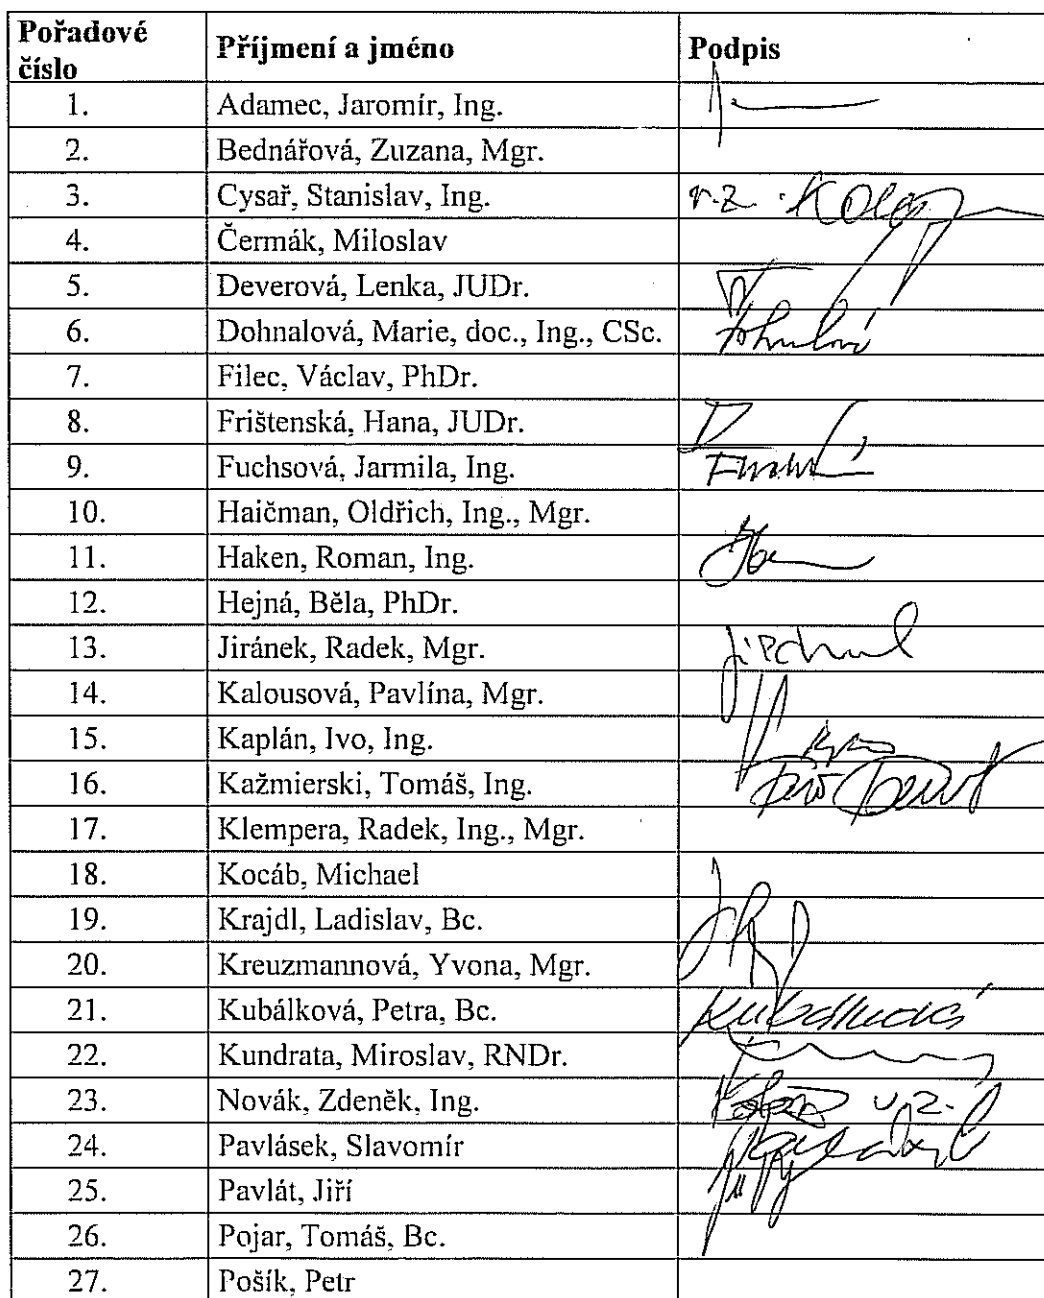 Pořadové číslo Příjmení a jméno Podpis
1. Adamec, Jaromír, Ing.
2. Bednářová, Zuzana, Mgr.
3. Cysař, Stanislav, Ing.
4. Čermák, Miloslav
5. Deverová, Lenka, JUDr.
6. Dohnalová, Marie, doc., Ing., CSc.
7. Filec, Václav, PhDr.
8. Frištenská, Hana, JUDr.
9. Fuchsová, Jarmila, Ing.
10. Haičman, Oldřich, Ing., Mgr.
11. Haken, Roman, Ing.
12. Hejná, Běla, PhDr.
13. Jiránek, Radek, Mgr.
14. Kalousová, Pavlína, Mgr.
15. Kaplán, Ivo, Ing.
16. Kažmierski, Tomáš, Ing.
17. Klempera, Radek, Ing., Mgr.
18. Kocáb, Michael
19. Krajdl, Ladislav, Bc.
20. Kreuzmannová, Yvona, Mgr.
21. Kubálková, Petra, Bc.
22. Kundrata, Miroslav, RNDr.
23. Novák, Zdeněk, Ing. v z.
24. Pavlásek, Slavomír
25. Pavlát, Jiří
26. Pojar, Tomáš, Bc.
27. Pošík, Petr